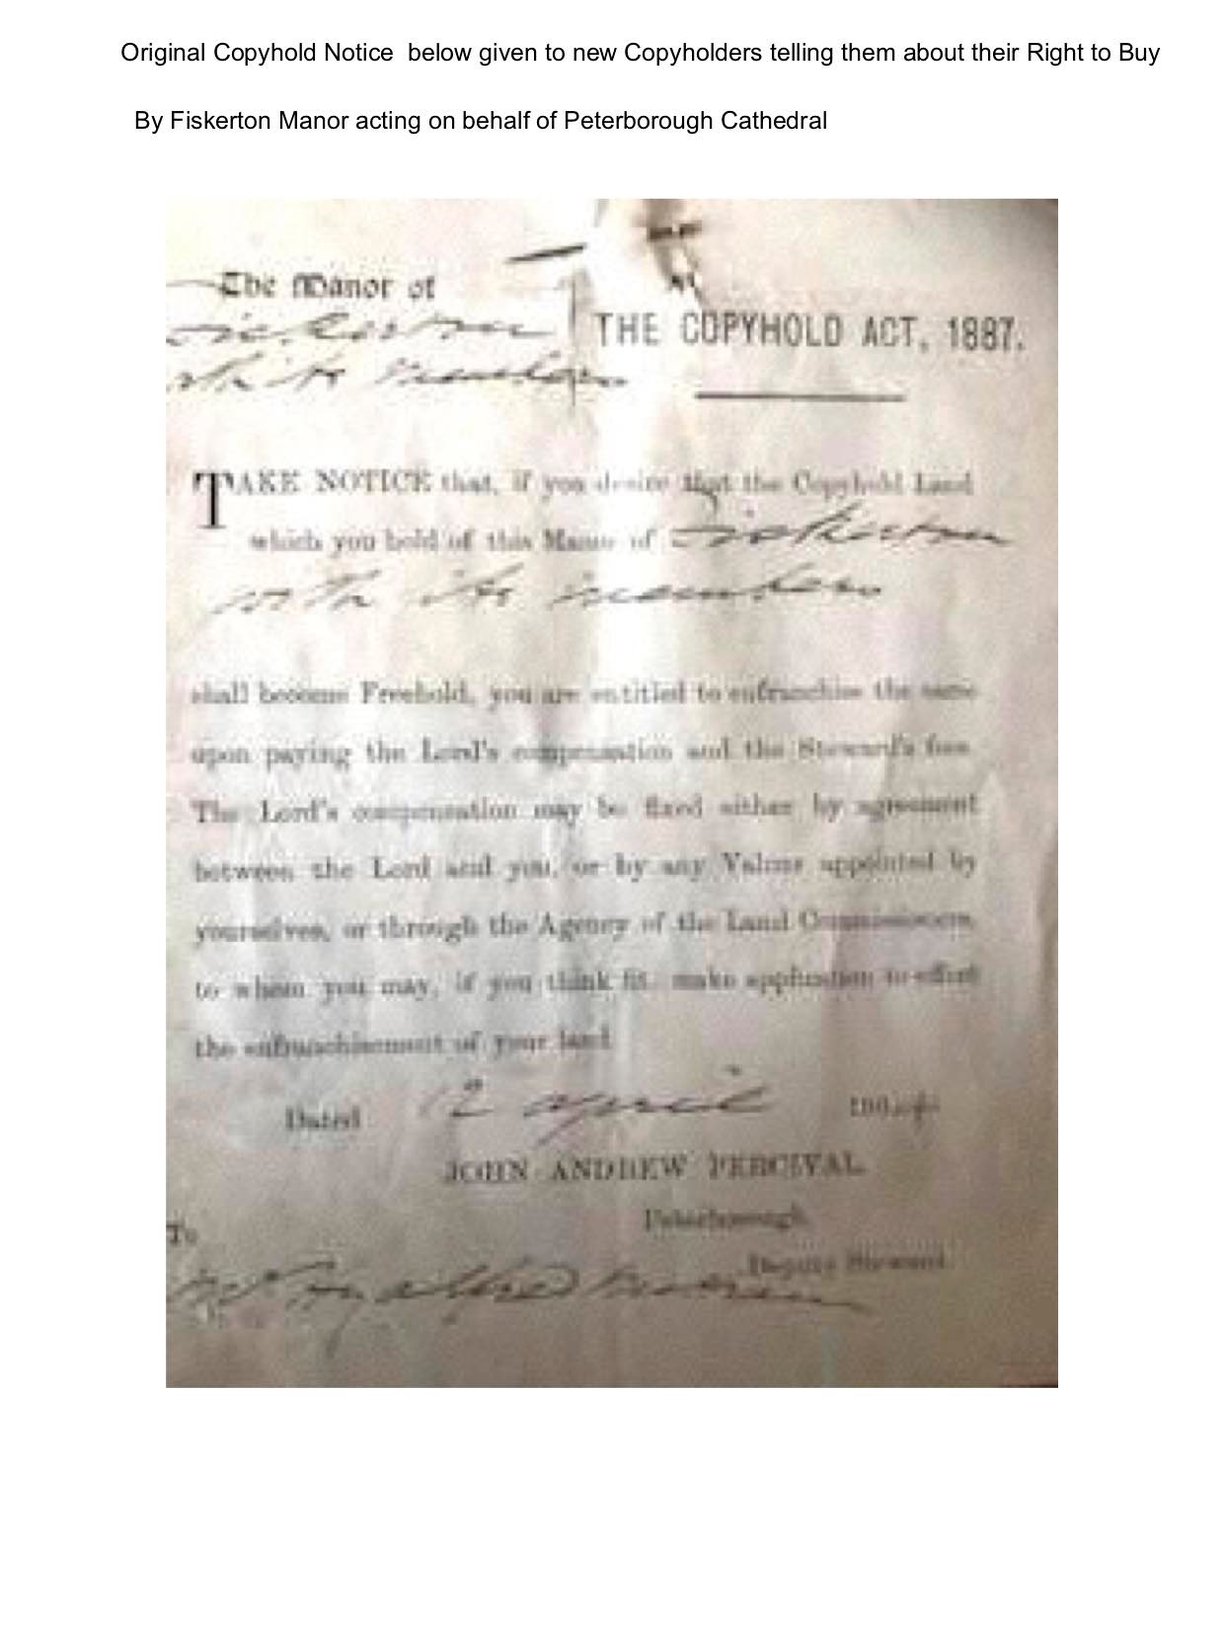 Original Copyhold Notice below given to new Copyholders telling them about their Right to Buy
By Fiskerton Manor acting on behalf of Peterborough Cathedral
The Manor of
Fiskerton
with its members
THE COPYHOLD ACT, 1887.
TAKE NOTICE that, if you desire that the Copyhold Land
which you hold of this Manor of Fiskerton
with its members
shall become Freehold, you are entitled to enfranchise the same
upon paying the Lord's compensation and the Steward's fees
The Lord's compensation may be fixed either by agreement
between the Lord and you, or by any Valuer appointed by
yourselves, or through the Agency of the Land Commissioners,
to whom you may, if you think fit, make application to effect
the enfranchisement of your land
Dated 12 april
JOHN ANDREW PERCIVAL
Peterborough
Deputy Steward.
To